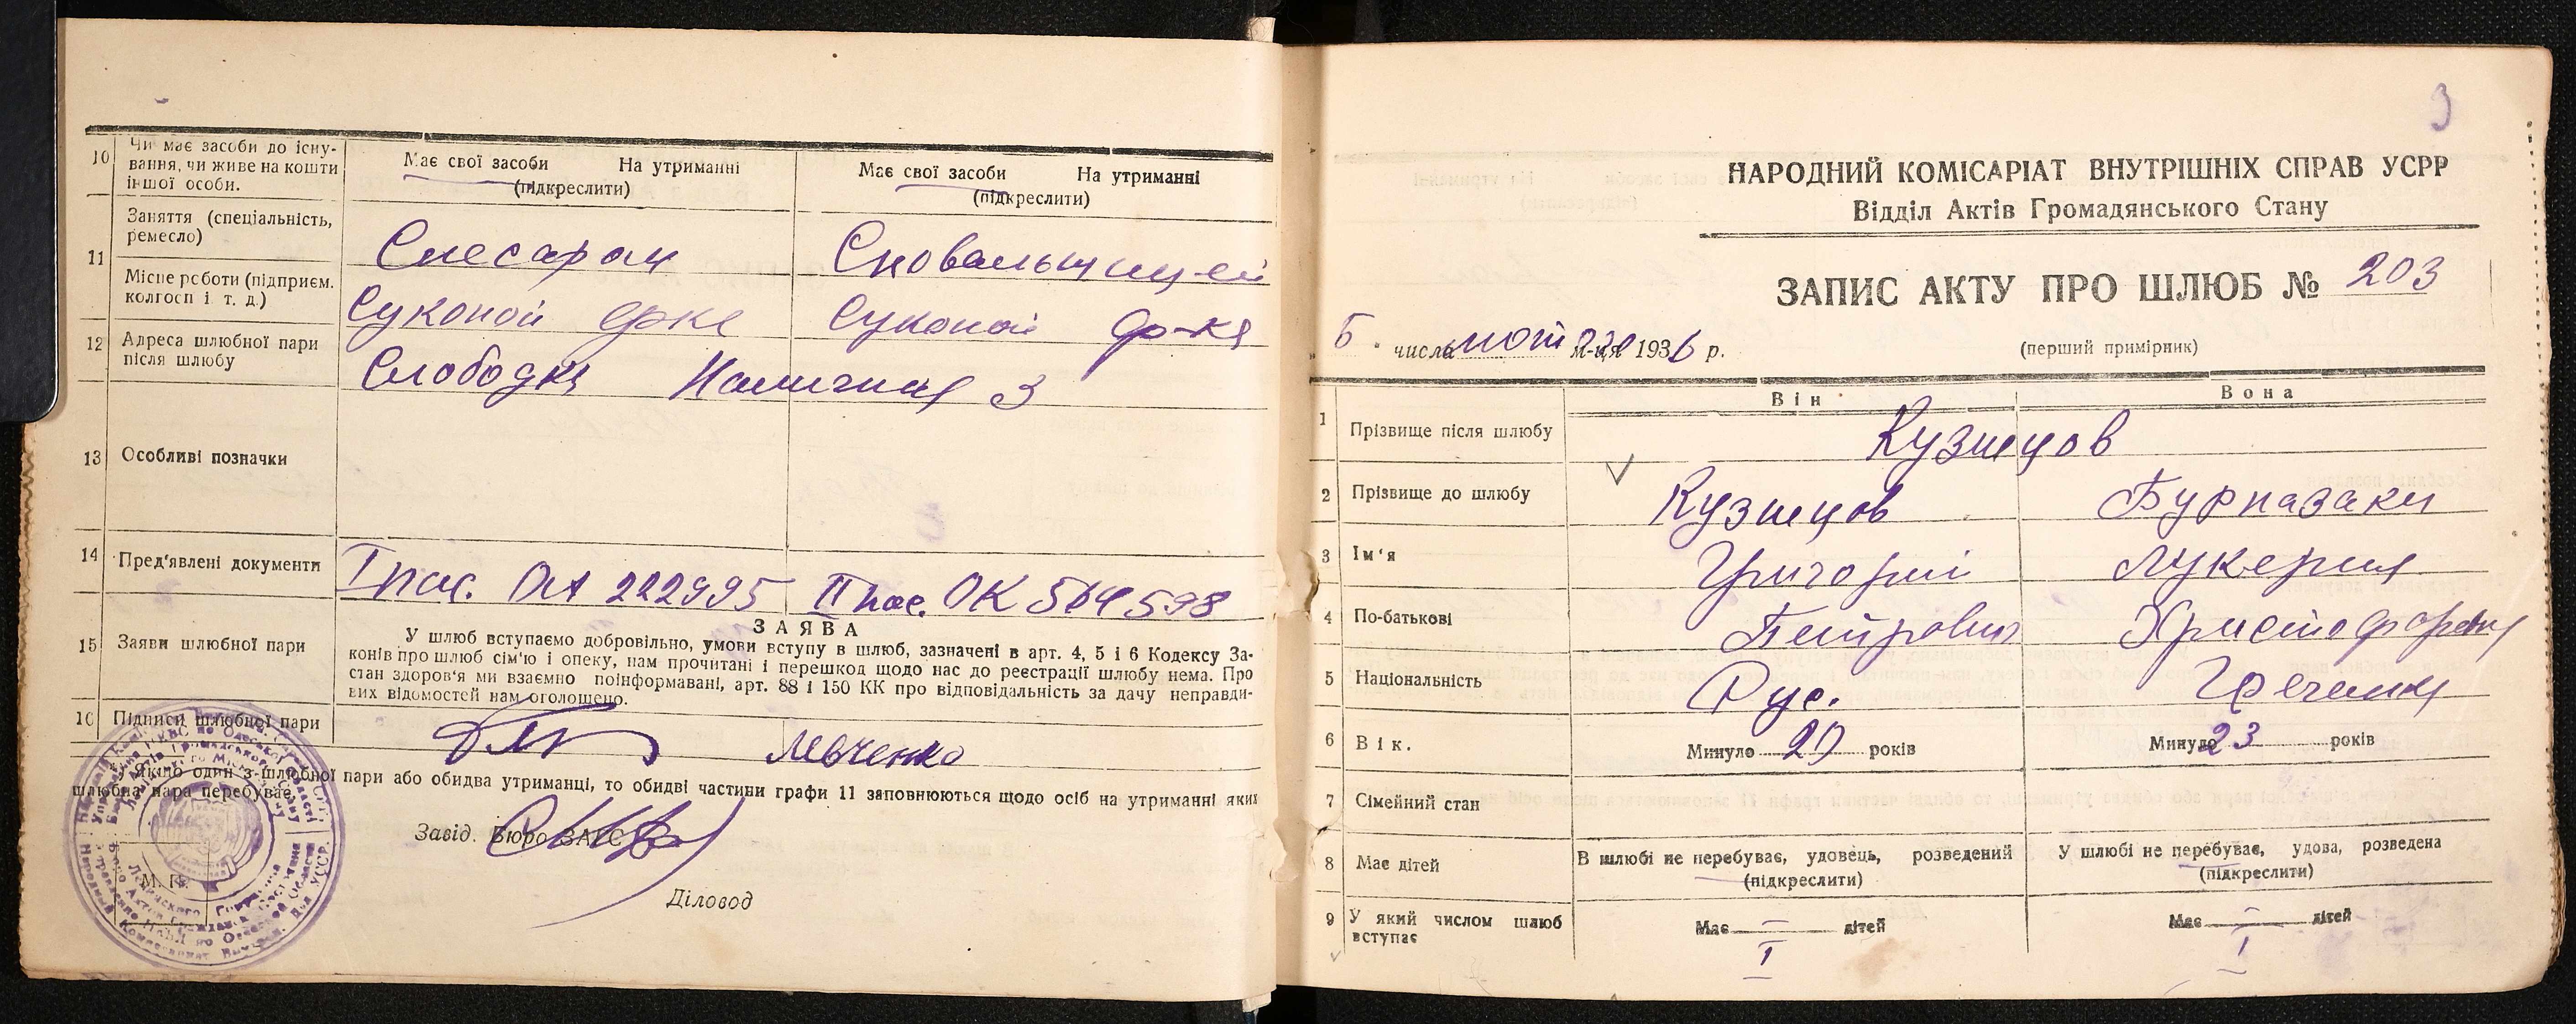 10 Чи має засоби до існу-
вання, чи живе на кошти
іншої особи.
Має свої засоби На утриманні
(підкреслити)
Має свої засоби На утриманні
(підкреслити)
11 Заняття (спеціальність,
ремесло)
Слесарем
Сновальщицей
Місце роботи (підприєм.
колгосп і т. д.)
Суконой ф-ке
Суконой ф-ке
12 Адреса шлюбної пари
після шлюбу
Слободка 3
13 Особливі позначки
14 Пред'явлені документи
I пас. ОА 222995 II пас. ОК 564598
15 Заяви шлюбної пари
ЗАЯВА
У шлюб вступаємо добровільно, умови вступу в шлюб, зазначені в арт. 4, 5 і 6 Кодексу За-
конів про шлюб сім'ю і опеку, нам прочитані і перешкод щодо нас до реєстрації шлюбу нема. Про
стан здоров'я ми взаємно поінформавані, арт. 88 і 150 КК про відповідальність за дачу неправди-
вих відомостей нам оголошено.
16 Підписи шлюбної пари
Левченко
Якщо один з шлюбної пари або обидва утриманці, то обидві частини графи 11 заповнюються щодо осіб на утриманні яких
шлюбна пара перебуває.
Завід. Бюро ЗАГС
М. П.
Діловод
3
НАРОДНИЙ КОМІСАРІАТ ВНУТРІШНІХ СПРАВ УСРР
Відділ Актів Громадянського Стану
ЗАПИС АКТУ ПРО ШЛЮБ № 203
5 числа лютого м-ця 1936 р.
(перший примірник)
Він Вона
1 Прізвище після шлюбу
Кузнецов
2 Прізвище до шлюбу
Кузнецов
Бурназаки
3 Ім'я
Григорій
Лукерия
4 По-батькові
Петрович
Христофоровна
5 Національність
Рус.
Гречанка
6 Вік.
Минуло 27 років
Минуло 23 років
7 Сімейний стан
8 Має дітей
В шлюбі не перебуває, удовець, розведений
(підкреслити)
У шлюбі не перебуває, удова, розведена
(підкреслити)
9 У який числом шлюб
вступає
Має — дітей
I
Має — дітей
I